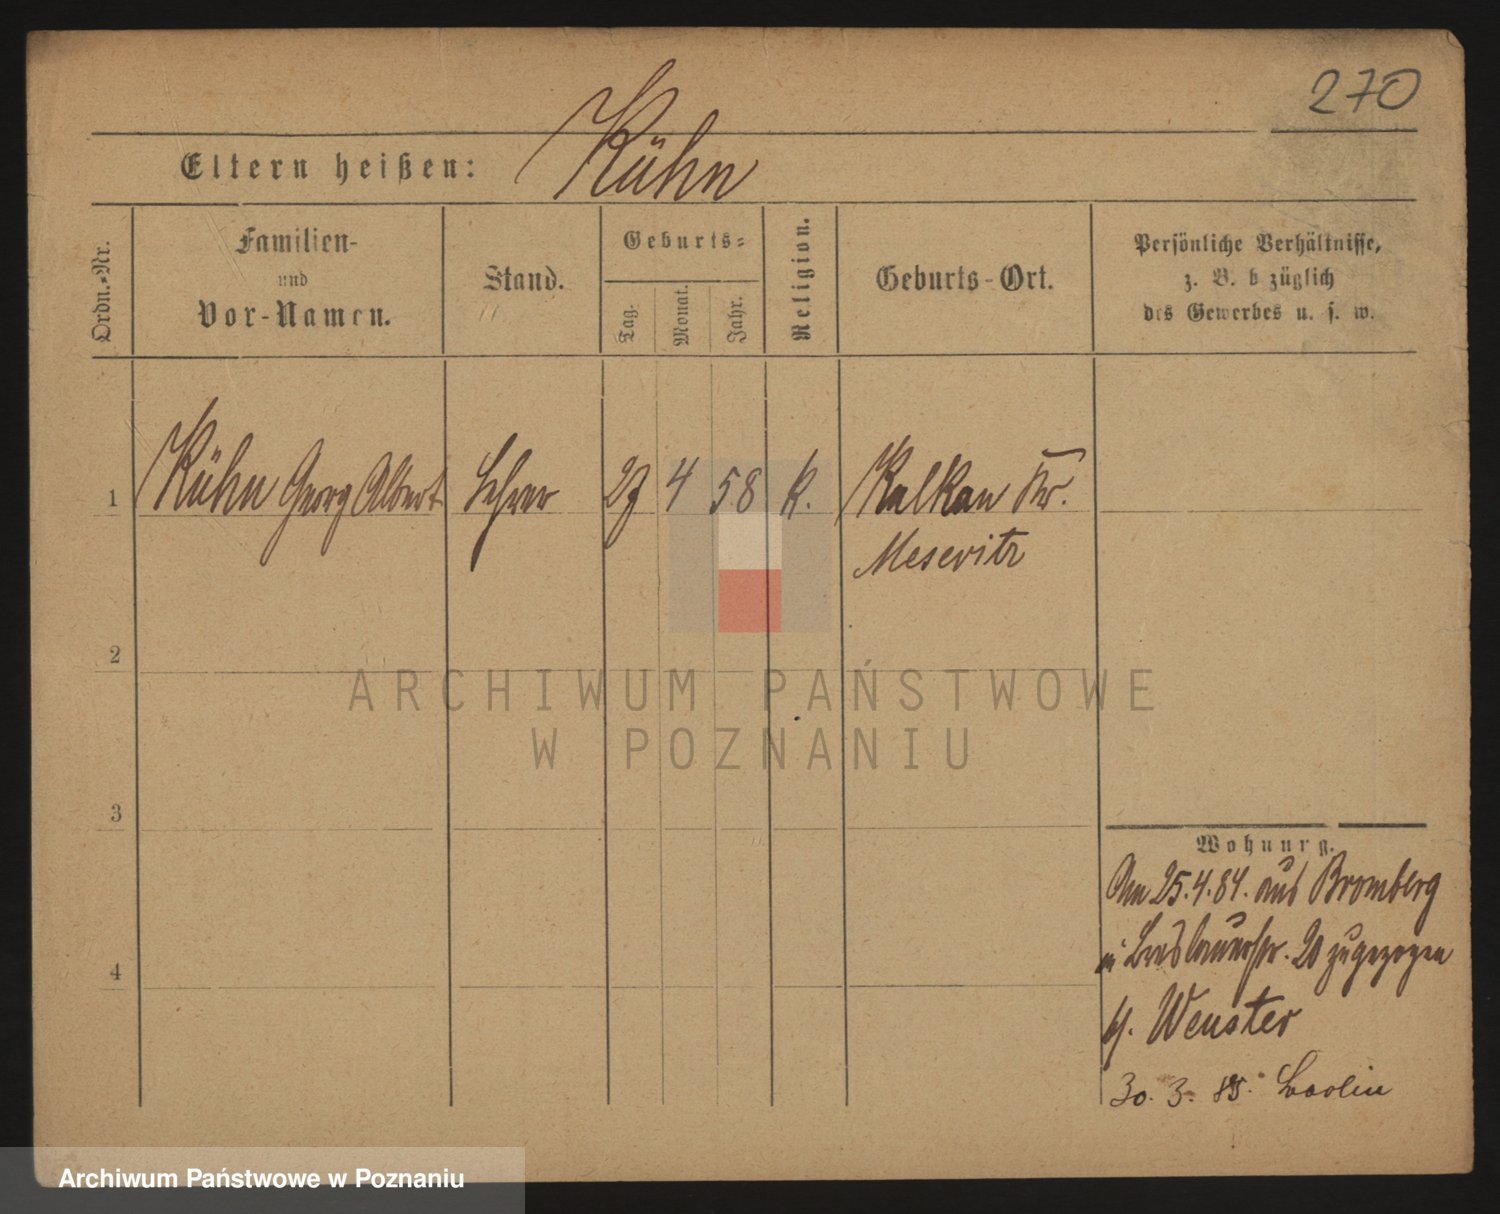 270
Eltern heißen: Kühn
Ordn.-Nr.
Familien-
und
Vor-Namen.
Stand.
Geburts-
Tag.
Monat.
Jahr.
Religion.
Geburts-Ort.
Persönliche Verhältnisse,
z. B. b züglich
des Gewerbes u. s. w.
1 Kühn Georg Albert Lehrer 27 4 58 k. Kalkau Kr.
Meseritz
2
ARCHIWUM PAŃSTWOWE
W POZNANIU
3
4
Wohnung.
Am 25.4.84. aus Bromberg
Breslauerstr. 20 zugezogen
Wenster
30. 3. 85.
Archiwum Państwowe w Poznaniu